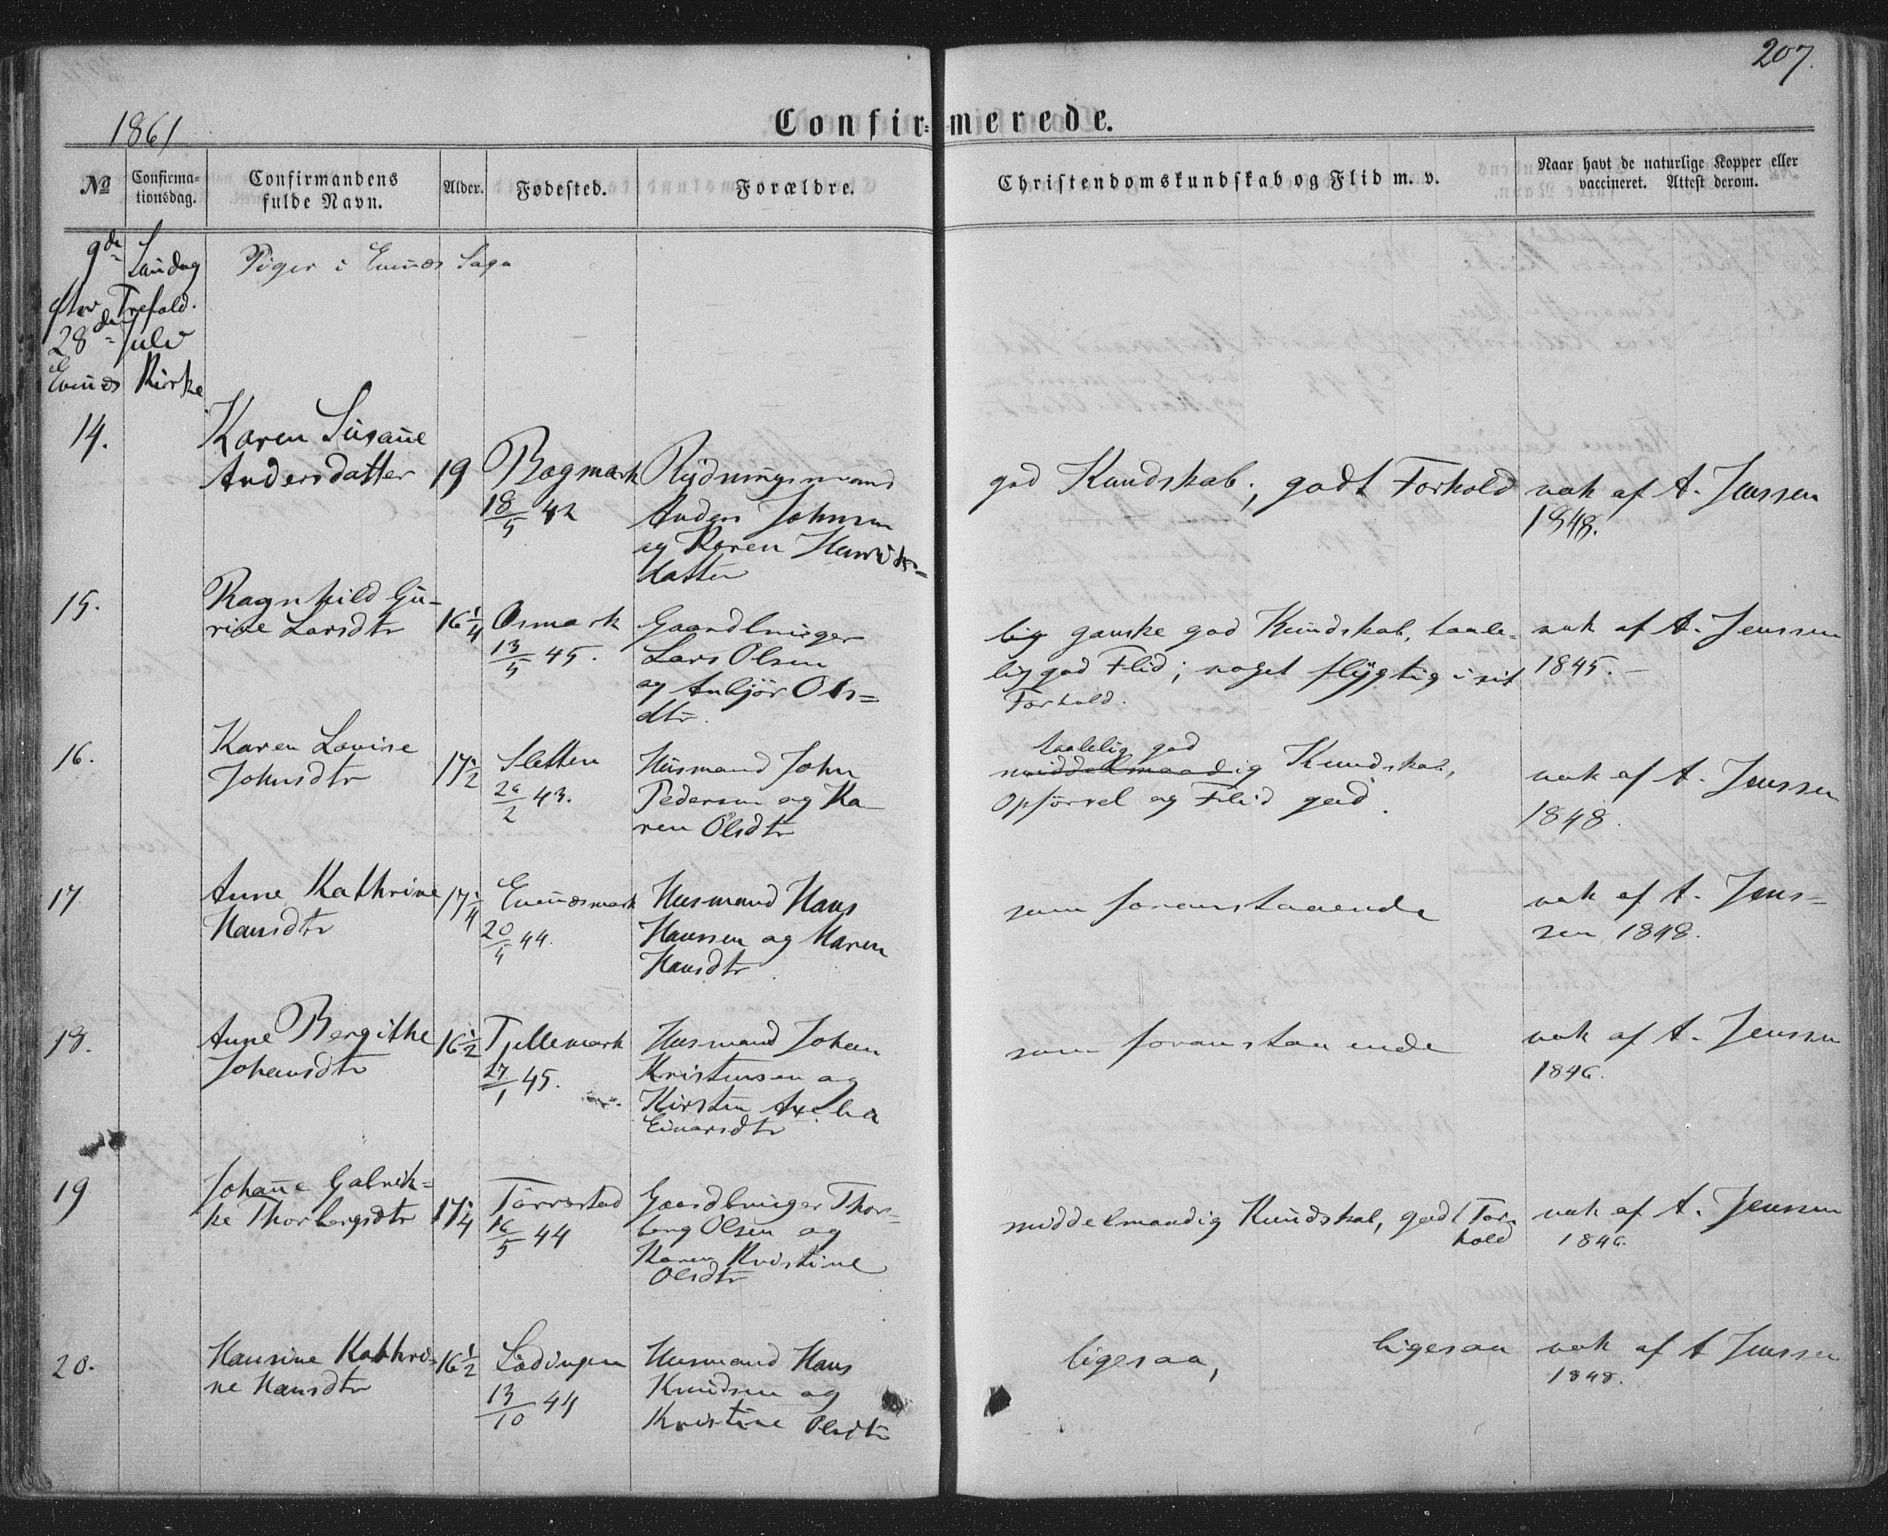 207.
1861
Confir=merede.
No
Confirma-
tionsdag.
Confirmandens
fulde Navn.
Alder.
Fødested.
Forældre.
Christendomskundskab og Flid m. v.
Naar havt de naturlige Kopper eller
vaccineret. Attest derom.
9de Søndag
efter Trefold.
28de Juli
Evenes Kirke
Piger i Evenes Sogn
14.
Karen Susanne
Andersdatter
19
Bogmark
18/5 42
Rydningsmand
Anders Johnsen
og Karen Henriks=
datter
god Kundskab, godt Forhold
vak af A. Jenssen
1848.
15.
Ragnhild Gu-
rine Larsdtr
16 1/4
Osmark
13/5 45.
Gaardbruger
Lars Olsen
og Anbjør Ols=
dtr.
ganske god Kundskab, taale-
lig god Flid; noget flygtig i sit
Forhold.
vak af A. Jenssen
1845.
16.
Karen Lovise
Johnsdtr
17 1/2
Sletten
/2 43.
Husmand John
Pedersen og Ka-
ren Olsdtr
taalelig god
middelmaadig Kundskab,
Opførsel og Flid god.
vak af A. Jenssen
1848.
17
Anne Kathrine
Hansdtr
17 1/4
Evenesmark
20/4 44.
Husmand Hans
Hanssen og Maren
Hansdtr.
som foranstaaende
vak af A. Jens=
sen 1848.
18.
Anne Bergithe
Johansdtr
16 1/2
Tjellemark
27/1 45.
Husmand Johan
Kristensen og
Kirsten Axelia
Einarsdtr
som foranstaaende
vak af A. Jenssen
1846.
19
Johanne Gabrik=
ke Thorbergsdtr
17 1/4
Tørrestad
16/5 44
Gaardbruger Thor-
berg Olsen og
Karen Kristine
Olsdtr
middelmaadig Kundskab, godt For-
hold
vak af A. Jenssen
1846.
20.
Hansine Kathri-
ne Hansdtr
16 1/2
Lødingen
13/10 44
Husmand Hans
Knudsen og
Kristine Olsdtr
ligesaa, ligesaa
vak af A Jenssen
1848.